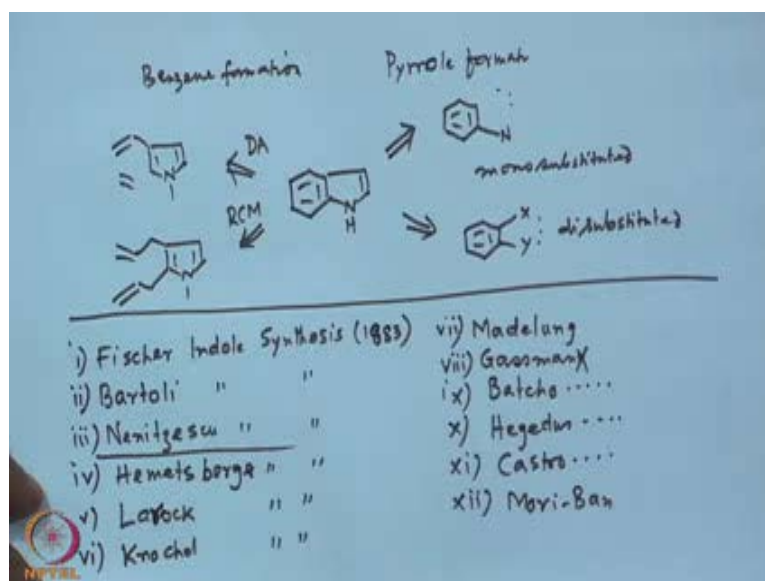 Benzene formation
Pyrrole format
DA
RCM
N
N
N
H
N
monosubstituted
X
Y
disubstituted
i) Fischer Indole Synthesis (1983)
ii) Bartoli " "
iii) Nenitzescu " "
iv) Hemetsberge " "
v) Larock " "
vi) Knochol " "
vii) Madelung
viii) Gassman
ix) Batcho .....
x) Hegedus ....
xi) Castro ....
xii) Mori-Ban
NPTEL